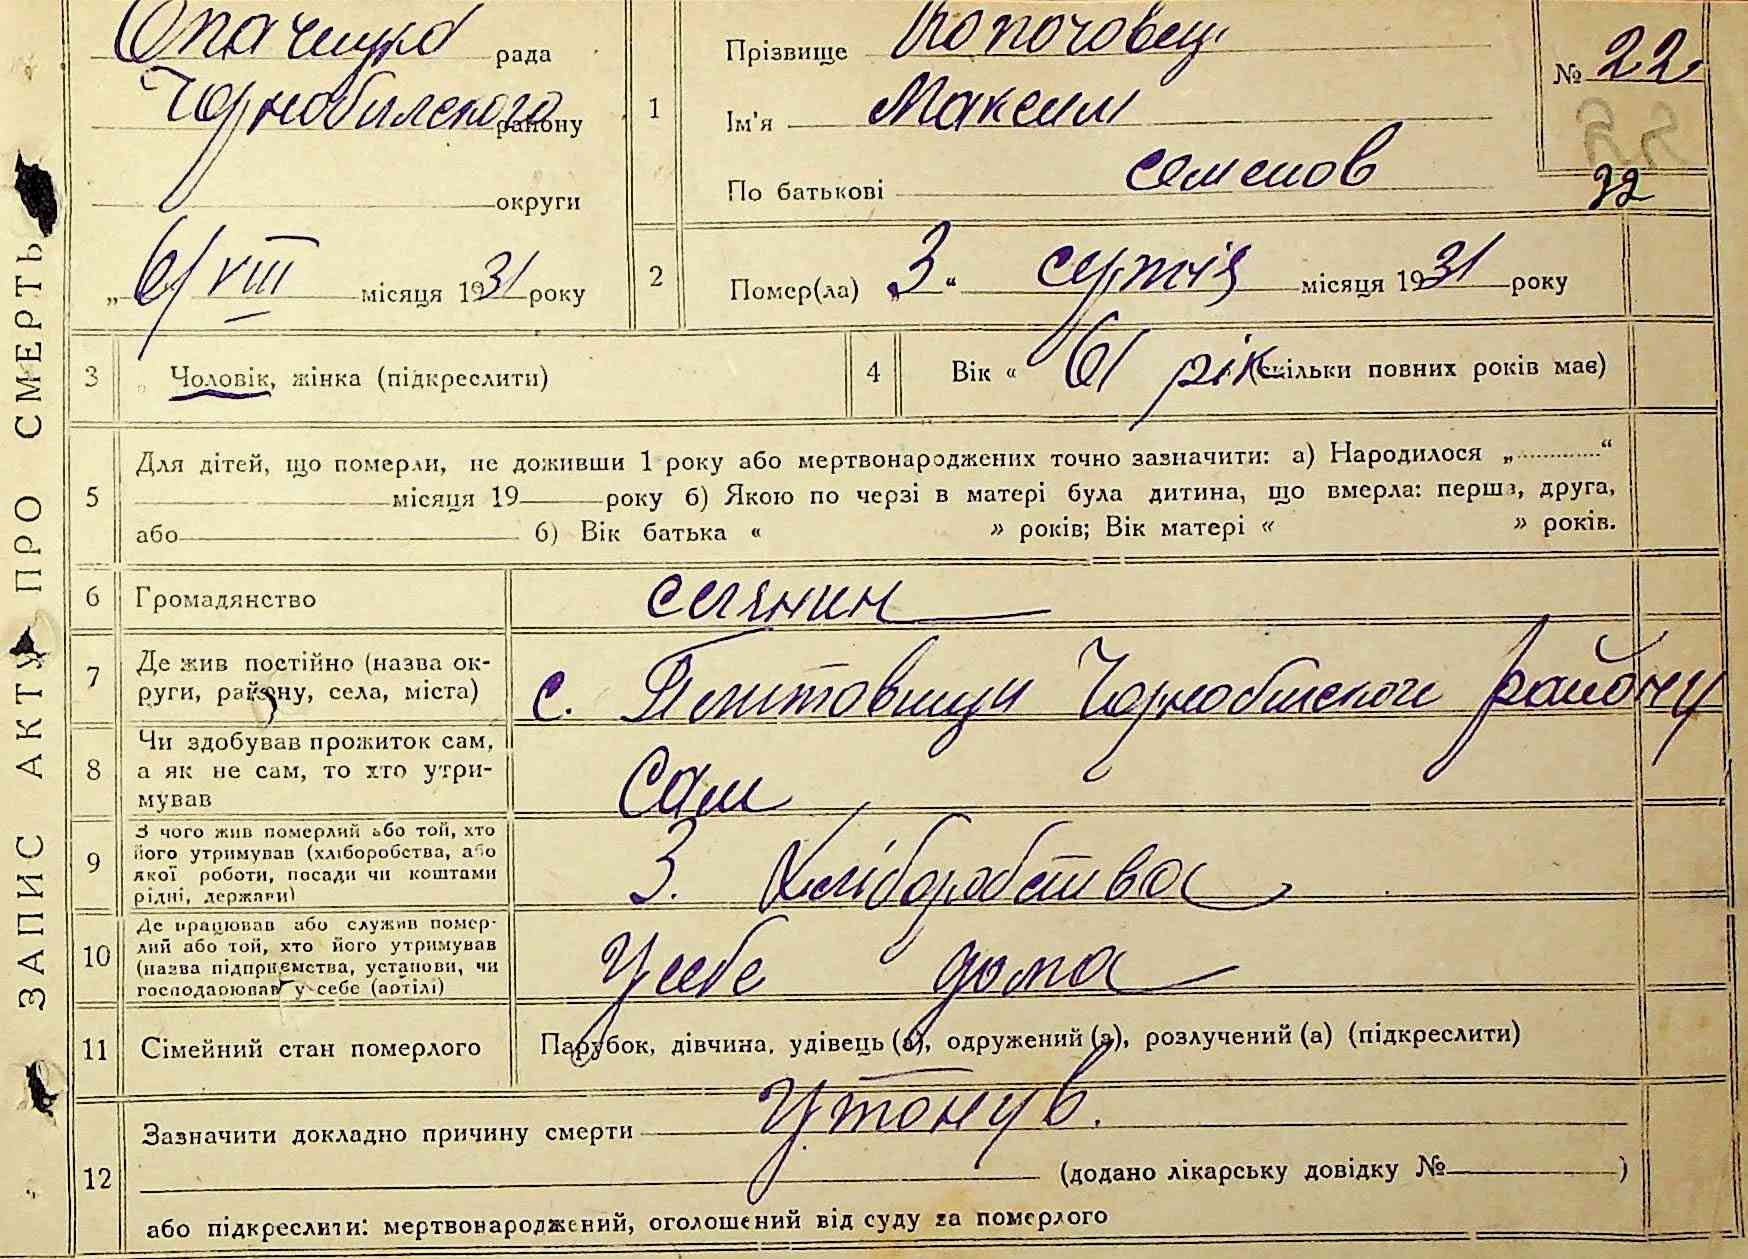 ЗАПИС АКТУ ПРО СМЕРТЬ
Опачицко рада
Чорнобилского району
округи
„6/VIII місяця 1931 року
1
Прізвище
Ім'я Максим
По батькові Семенов
№ 22
55
32
2
Помер(ла) „3“ серпня місяця 1931 року
3 „ Чоловік, жінка (підкреслити)
4 Вік « 61 рік (скільки повних років має)
5
Для дітей, що померли, не доживши 1 року або мертвонароджених точно зазначити: а) Народилося „ “
місяця 19 року б) Якою по черзі в матері була дитина, що вмерла: перша, друга,
або б) Вік батька « » років; Вік матері « » років.
6 Громадянство селянин
7 Де жив постійно (назва ок-
руги, району, села, міста)
с. Плитовищи Чорнобилского району
8 Чи здобував прожиток сам,
а як не сам, то хто утри-
мував
Сам
9 З чого жив померлий або той, хто
його утримував (хліборобства, або
якої роботи, посади чи коштами
рідні, держави)
З. Хліборобства
10 Де працював або служив помер-
лий або той, хто його утримував
(назва підприємства, установи, чи
господарював у себе (артілі)
У себе дома
11 Сімейний стан померлого Парубок, дівчина, удівець (а), одружений (а), розлучений (а) (підкреслити)
12
Зазначити докладно причину смерти Утонув.
(додано лікарську довідку № )
або підкреслити: мертвонароджений, оголошений від суду за померлого